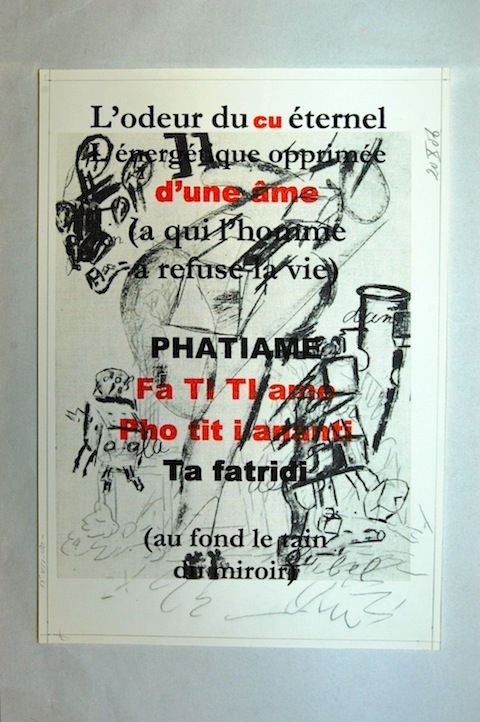 L'odeur du cu éternel
L'énergétique opprimée
d'une âme
(a qui l'homme
a refusé la vie)
PHATIAME
Fa TI TI ame
Pho tit i ananti
Ta fatridi
(au fond le tain
du miroir)
20 8 06